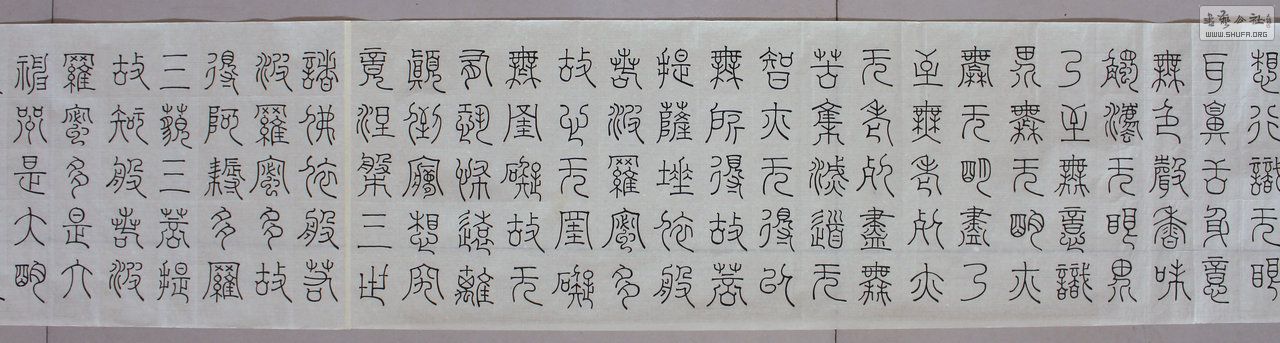 想行識无眼
耳鼻舌身意
無色聲香味
觸法无眼界
乃至無意識
界無无明亦
無无明盡乃
至無老死亦
无老死盡無
苦集滅道无
智亦无得以
無所得故菩
提薩埵依般
若波羅蜜多
故心无罣礙
無罣礙故无
有恐怖遠離
顛倒夢想究
竟涅槃三世
諸佛依般若
波羅蜜多故
得阿耨多羅
三藐三菩提
故知般若波
羅蜜多是大
神咒是大明
书艺公社
WWW.SHUFA.ORG